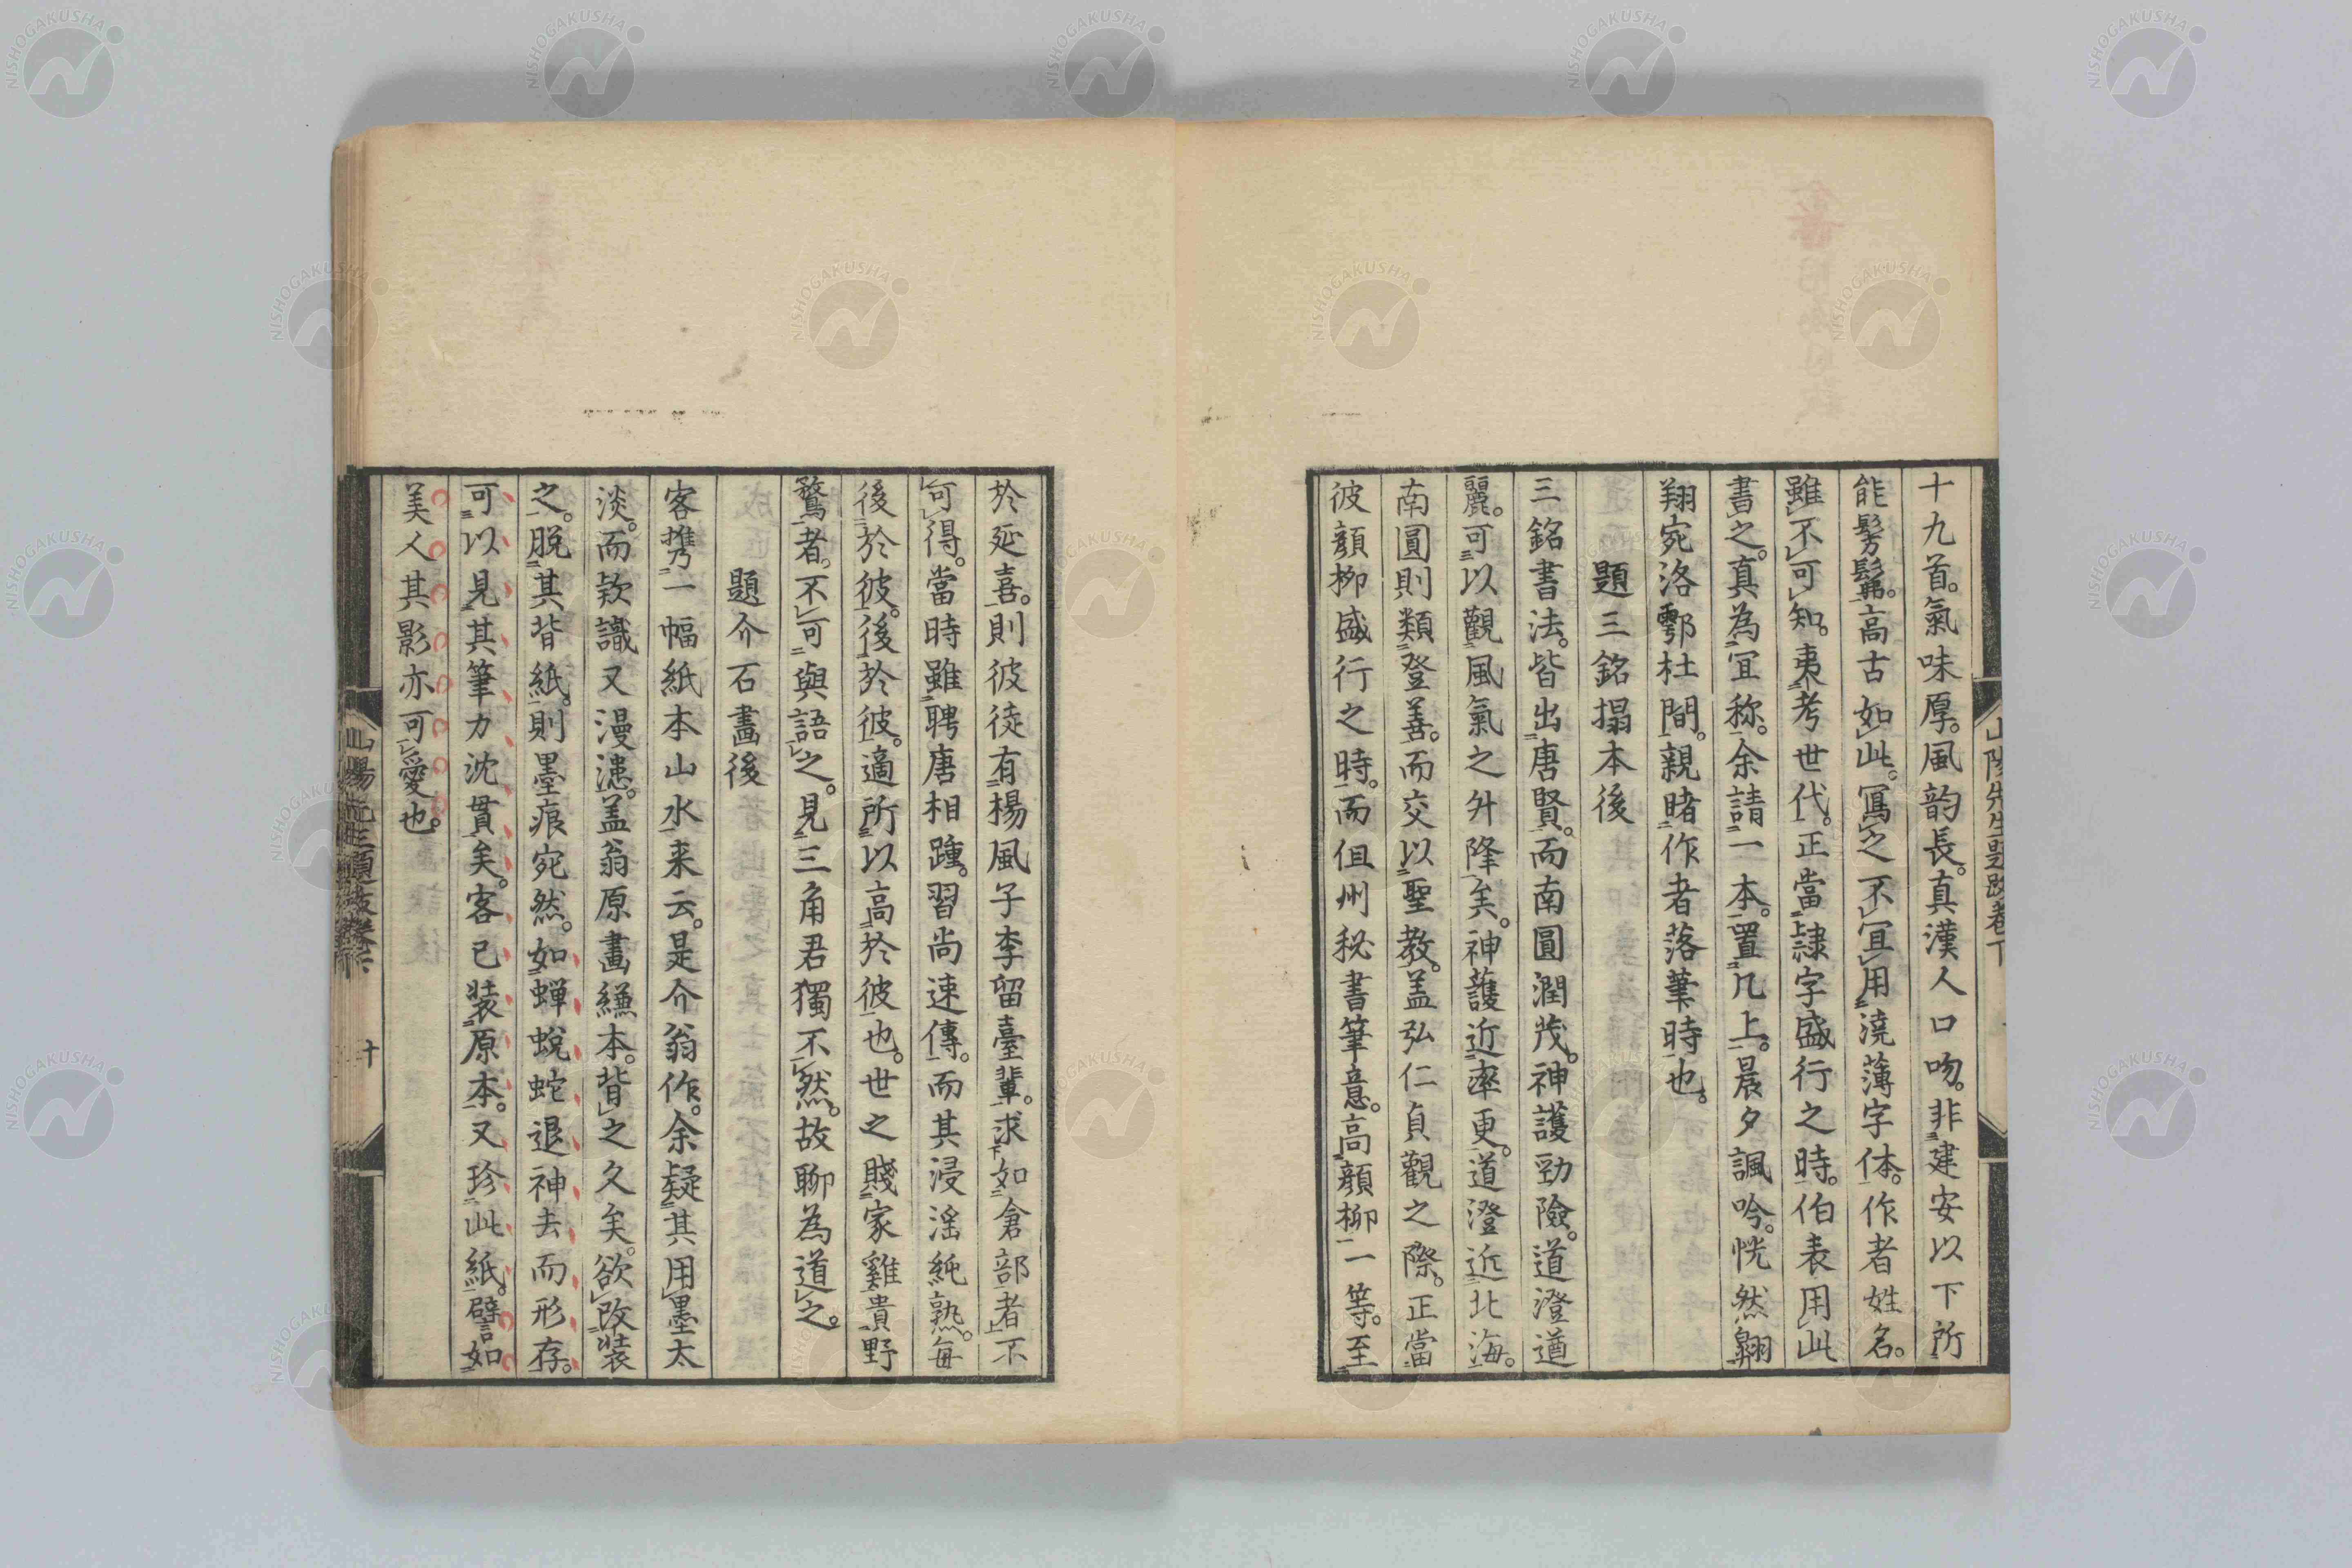 十九首。氣味厚。風韵長。真漢人口吻。非建安以下所
能髣髴。高古如此。寫之不宜用澆薄字体。作者姓名。
雖不可知。要考世代。正當隷字盛行之時。伯表用此
書之。真為宜称。余請一本。置几上。晨夕諷吟。恍然翺
翔宛洛鄠杜間。親睹作者落筆時也。
題三銘搨本後
三銘書法。皆出唐賢。而南圓潤茂。神護勁險。道澄遒
麗。可以觀風氣之升降矣。神護近率更。道澄近北海。
南圓則類登善。而交以聖教。盖弘仁貞觀之際。正當
彼顔柳盛行之時。而但州秘書筆意。高顔柳一等。至
於延喜。則彼徒有楊風子李留臺輩。求如倉部者不
可得。當時雖聘唐相踵。習尚速傳。而其浸淫純熟。每
後於彼。後於彼。適所以高於彼也。世之賤家雞貴野
鶩者。不可與語之。見三角君獨不然。故聊為道之。
題介石畫後
客携一幅紙本山水来云。是介翁作。余疑其用墨太
淡。而欵識又漫漶。盖翁原畫縑本。背之久矣。欲改装
之。脱其背紙。則墨痕宛然。如蝉蛻蛇退神去而形存。
可以見其筆力沈貫矣。客已装原本。又珍此紙。譬如
美人其影亦可愛也。
山陽先生題跋卷下
十
NISHOGAKUSHA